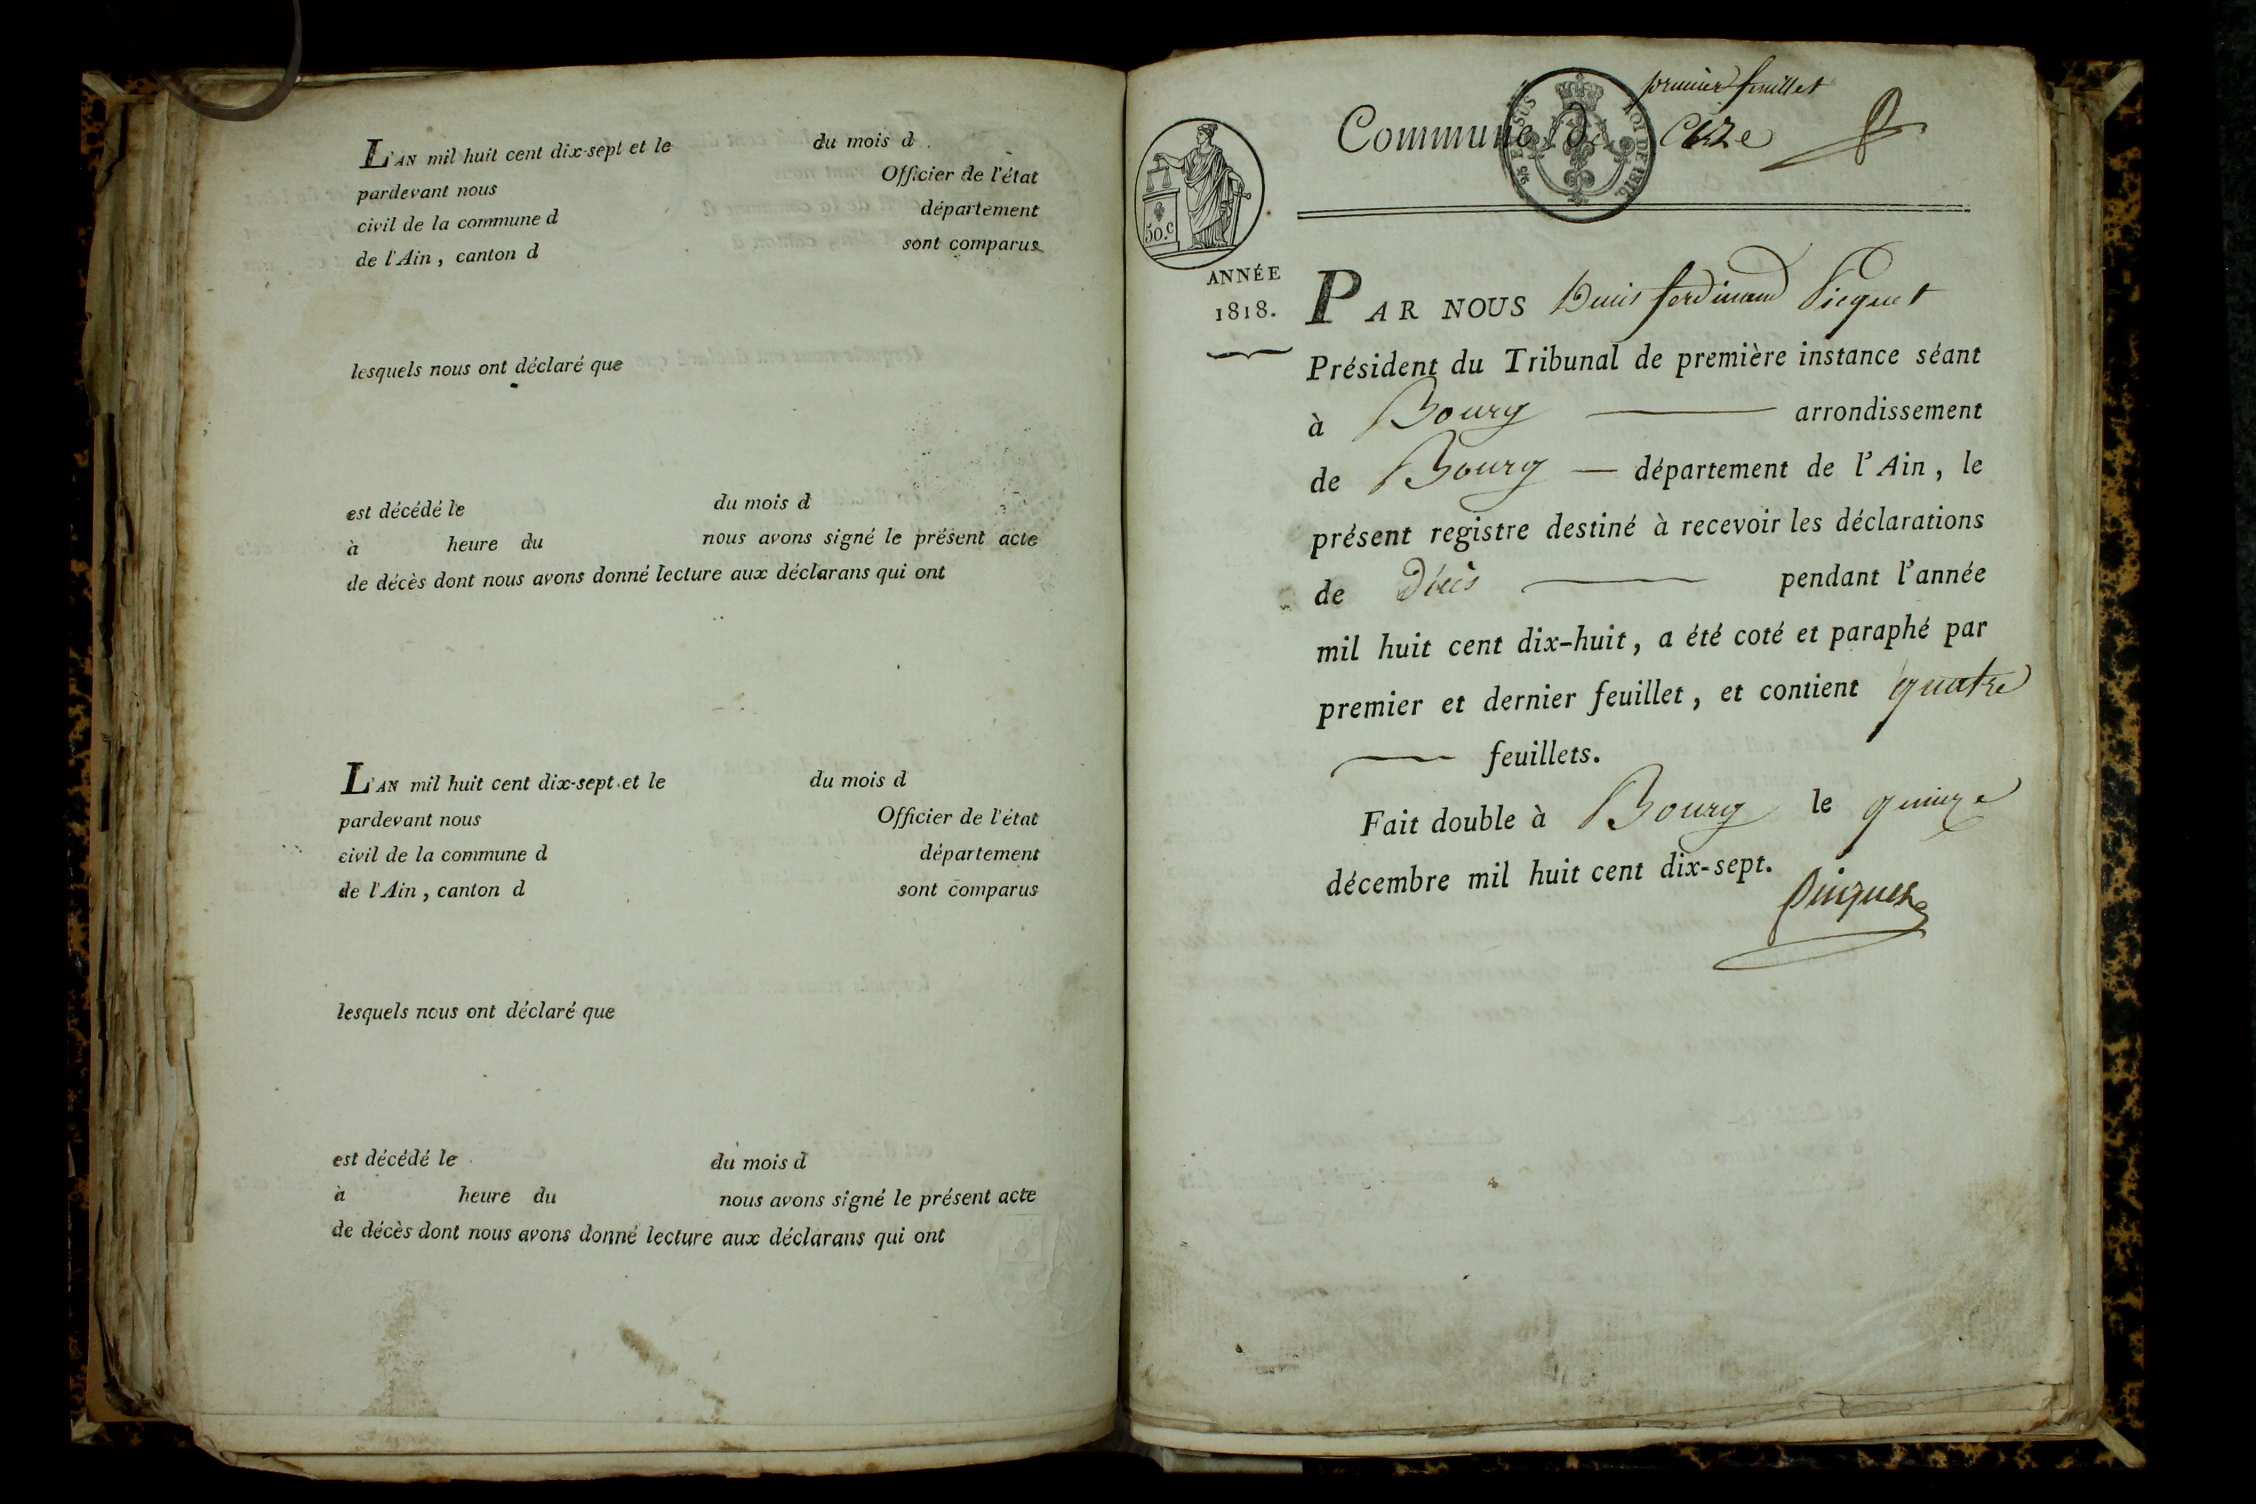 L'AN mil huit cent dix-sept et le du mois d
pardevant nous Officier de l'état
civil de la commune d département
de l'Ain, canton d sont comparus
lesquels nous ont déclaré que
est décédé le du mois d
à heure du nous avons signé le présent acte
de décès dont nous avons donné lecture aux déclarans qui ont
L'AN mil huit cent dix-sept et le du mois d
pardevant nous Officier de l'état
civil de la commune d département
de l'Ain, canton d sont comparus
lesquels nous ont déclaré que
est décédé le du mois d
à heure du nous avons signé le présent acte
de décès dont nous avons donné lecture aux déclarans qui ont
premier feuillet
Commune de Cize
50.c
ANNÉE
1818.
PAR NOUS Denis ferdinand Picquet
Président du Tribunal de première instance séant
à Bourg arrondissement
de Bourg — département de l'Ain, le
présent registre destiné à recevoir les déclarations
de Décès pendant l'année
mil huit cent dix-huit, a été coté et paraphé par
premier et dernier feuillet, et contient quatre
feuillets.
Fait double à Bourg le quinze
décembre mil huit cent dix-sept.
Picquet